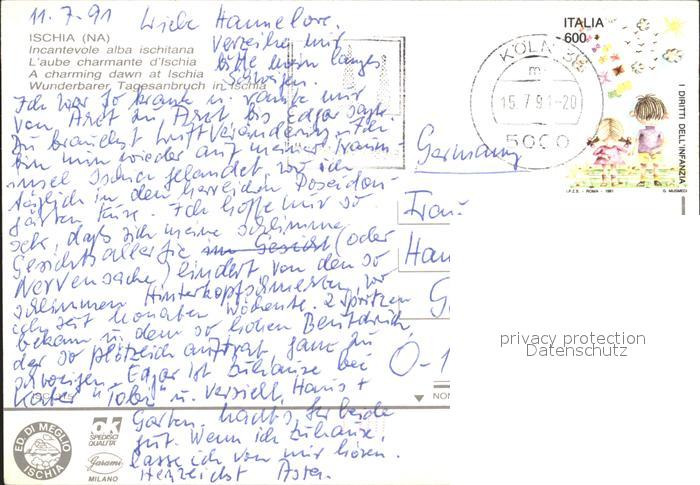 11.7.91 Liebe Hannelore.
ISCHIA (NA)
Incantevole alba ischitana
L'aube charmante d'Ischia
A charming dawn at Ischia
Wunderbarer Tagesanbruch in Ischia
Verzeihe mir
bitte mein langes
Schweigen.
Ich war so krank u. rannte mir
von Arzt zu Arzt bis Edgar sagte
Du brauchst Luftveränderung. Ich
bin nun wieder auf meiner Traum-
insel Ischia gelandet, wo ich
täglich in den herrlichen Poseidon-
gärten kure. Ich hoffe nur so
sehr, daß sich meine schlimme
Gesichtsallergie im Gesicht (oder
Nervensache) lindert von den so
schlimmen Hinterkopfschmerzen, wo
ich seit Monaten wöchentl. 2 Spritzen
bekam u. dem so hohen Blutdruck,
der so plötzlich auftrat ganz zu
schweigen. Edgar ist zuhause bei
Kater "Tobi" u. versieht Haus +
Garten. Macht's Ihr beide
gut. Wenn ich zuhause,
lasse ich von mir hören.
Herzlichst
Germany
Frau
Han
G
O-1
ITALIA
600
I DIRITTI DELL'INFANZIA
I.P.Z.S. - ROMA - 1991
G. MUSMECI
KÖLN
m
15.7.91-20
5000
privacy protection
Datenschutz
NON
ED. DI MEGLIO
ISCHIA
OK
SPEDISCI
QUALITA'
Garami
MILANO